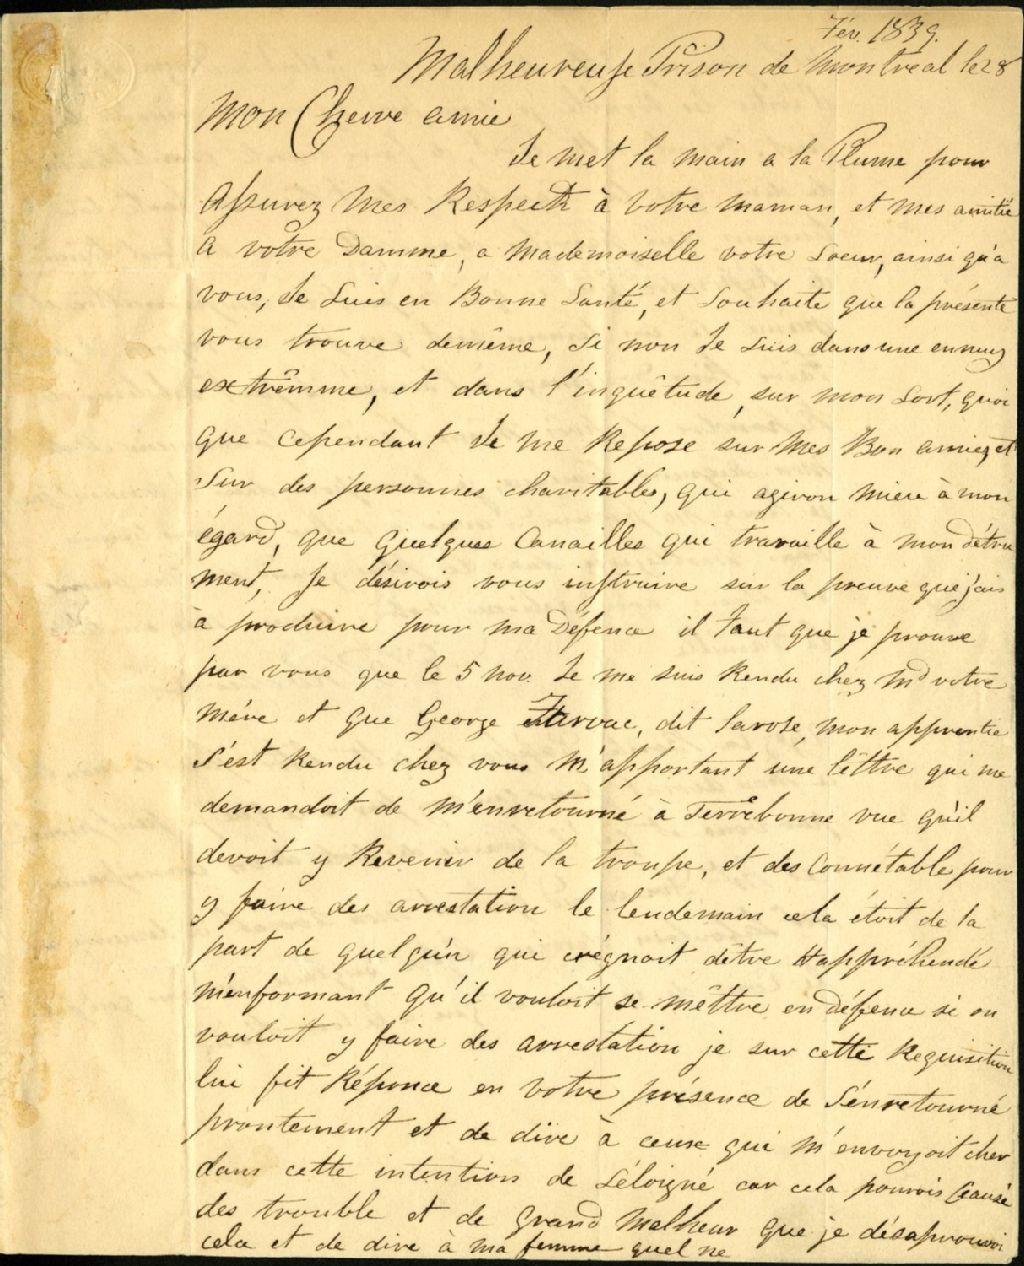 Fév. 1839.
Malheureuse Prison de Montreal le 28
Mon Cherre amie
Je met la main a la Plume pour
assurez Mes Respects à votre maman, et mes amitié
a votre Damme, a Mademoiselle votre Soeur, ainsi qu'a
vous, Je Suis en Bonne Santé, et Souhaite que la présente
vous trouve demême, Si non Je Suis dans une ennuy
extrêmme, et dans l'inquêtude, sur mon Sort, quoi
que Cependant Je me Repose sur Mes Bon amiez, et
Sur des personnes charitables, qui agiron mieu à mon
égard, que quelques Canailles qui travaille à mon détru
ment, Je désirois vous instruire sur la preuve que j'ais
à produire pour ma Défence il faut que je prouve
par vous que le 5 nov. Je me suis Rendu chez Md votre
Mére et que George, dit Larose, mon apprentie
S'est Rendu chez vous M'apportant une lêttre qui me
demandoit de M'enretourné à Terrebonne vue qu'il
devoit y Revenir de la troupe, et des Connétable pour
y faire des arrestation le lendemain cela étoit de la
part de quelqu'un qui crégnoit dêtre appréhendé
M'enformant qu'il vouloit se mêttre en défence si on
vouloit y faire des arrestation je sur cette Requisition
lui fit Réponce en votre présence de S'enretourné
prontement et de dire à ceux qui M'envoyoit cher
dans cette intention de S'éloigné car cela pouvois Causé
des trouble et de Grand Malheur que je désaprouvoi
cela et de dire à ma femme quel ne